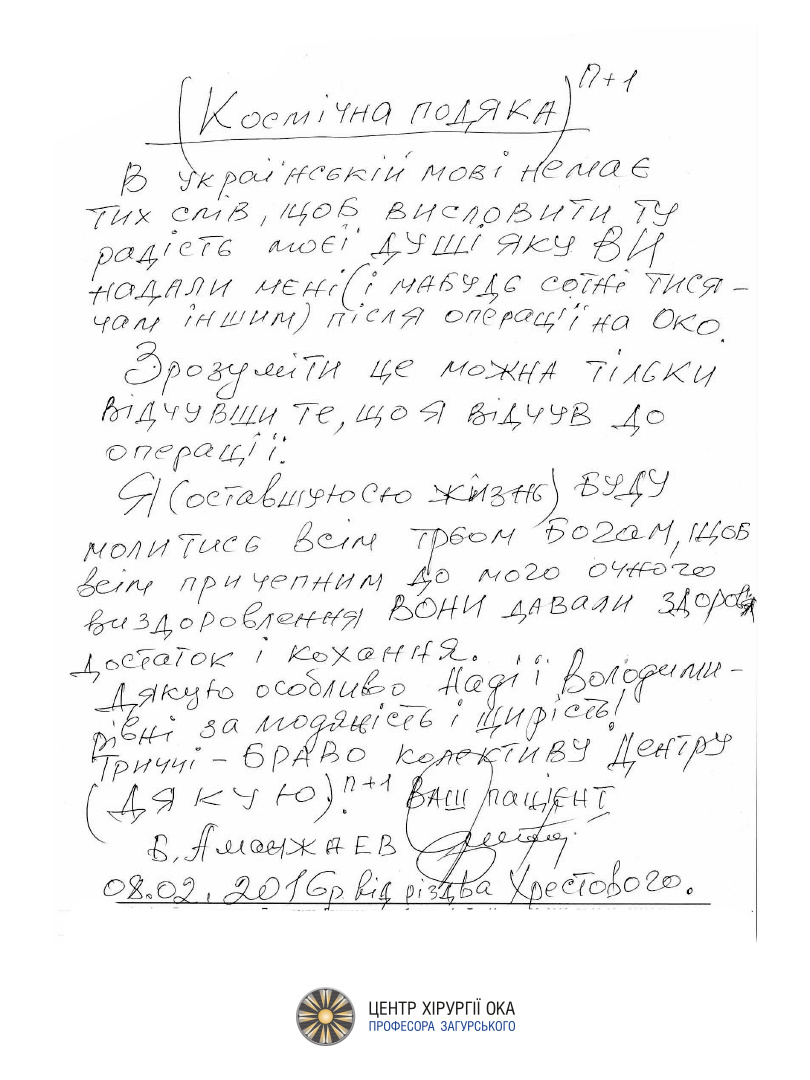 (Космічна подяка)ⁿ⁺¹
В українській мові немає
тих слів, щоб висловити ту
радість моєї душі яку Ви
надали мені (і мабудь сотні тися-
чам іншим) після операції на око.
Зрозуміти це можна тільки
відчувши те, що я відчув до
операції.
Я (оставшуюсю жизнь) буду
молитись всім трьом Богам, щоб
всім причепним до мого очного
виздоровлення вони давали здоров'я
достаток і кохання.
Дякую особливо Надії Володими-
рівні за людяність і щирість!
Триччі - БРАВО колективу Центру
(ДЯКУЮ)ⁿ⁺¹. Ваш пацієнт
Б. Аманжаев
08.02.2016р від різдва Хрестового.
ЦЕНТР ХІРУРГІЇ ОКА
ПРОФЕСОРА ЗАГУРСЬКОГО